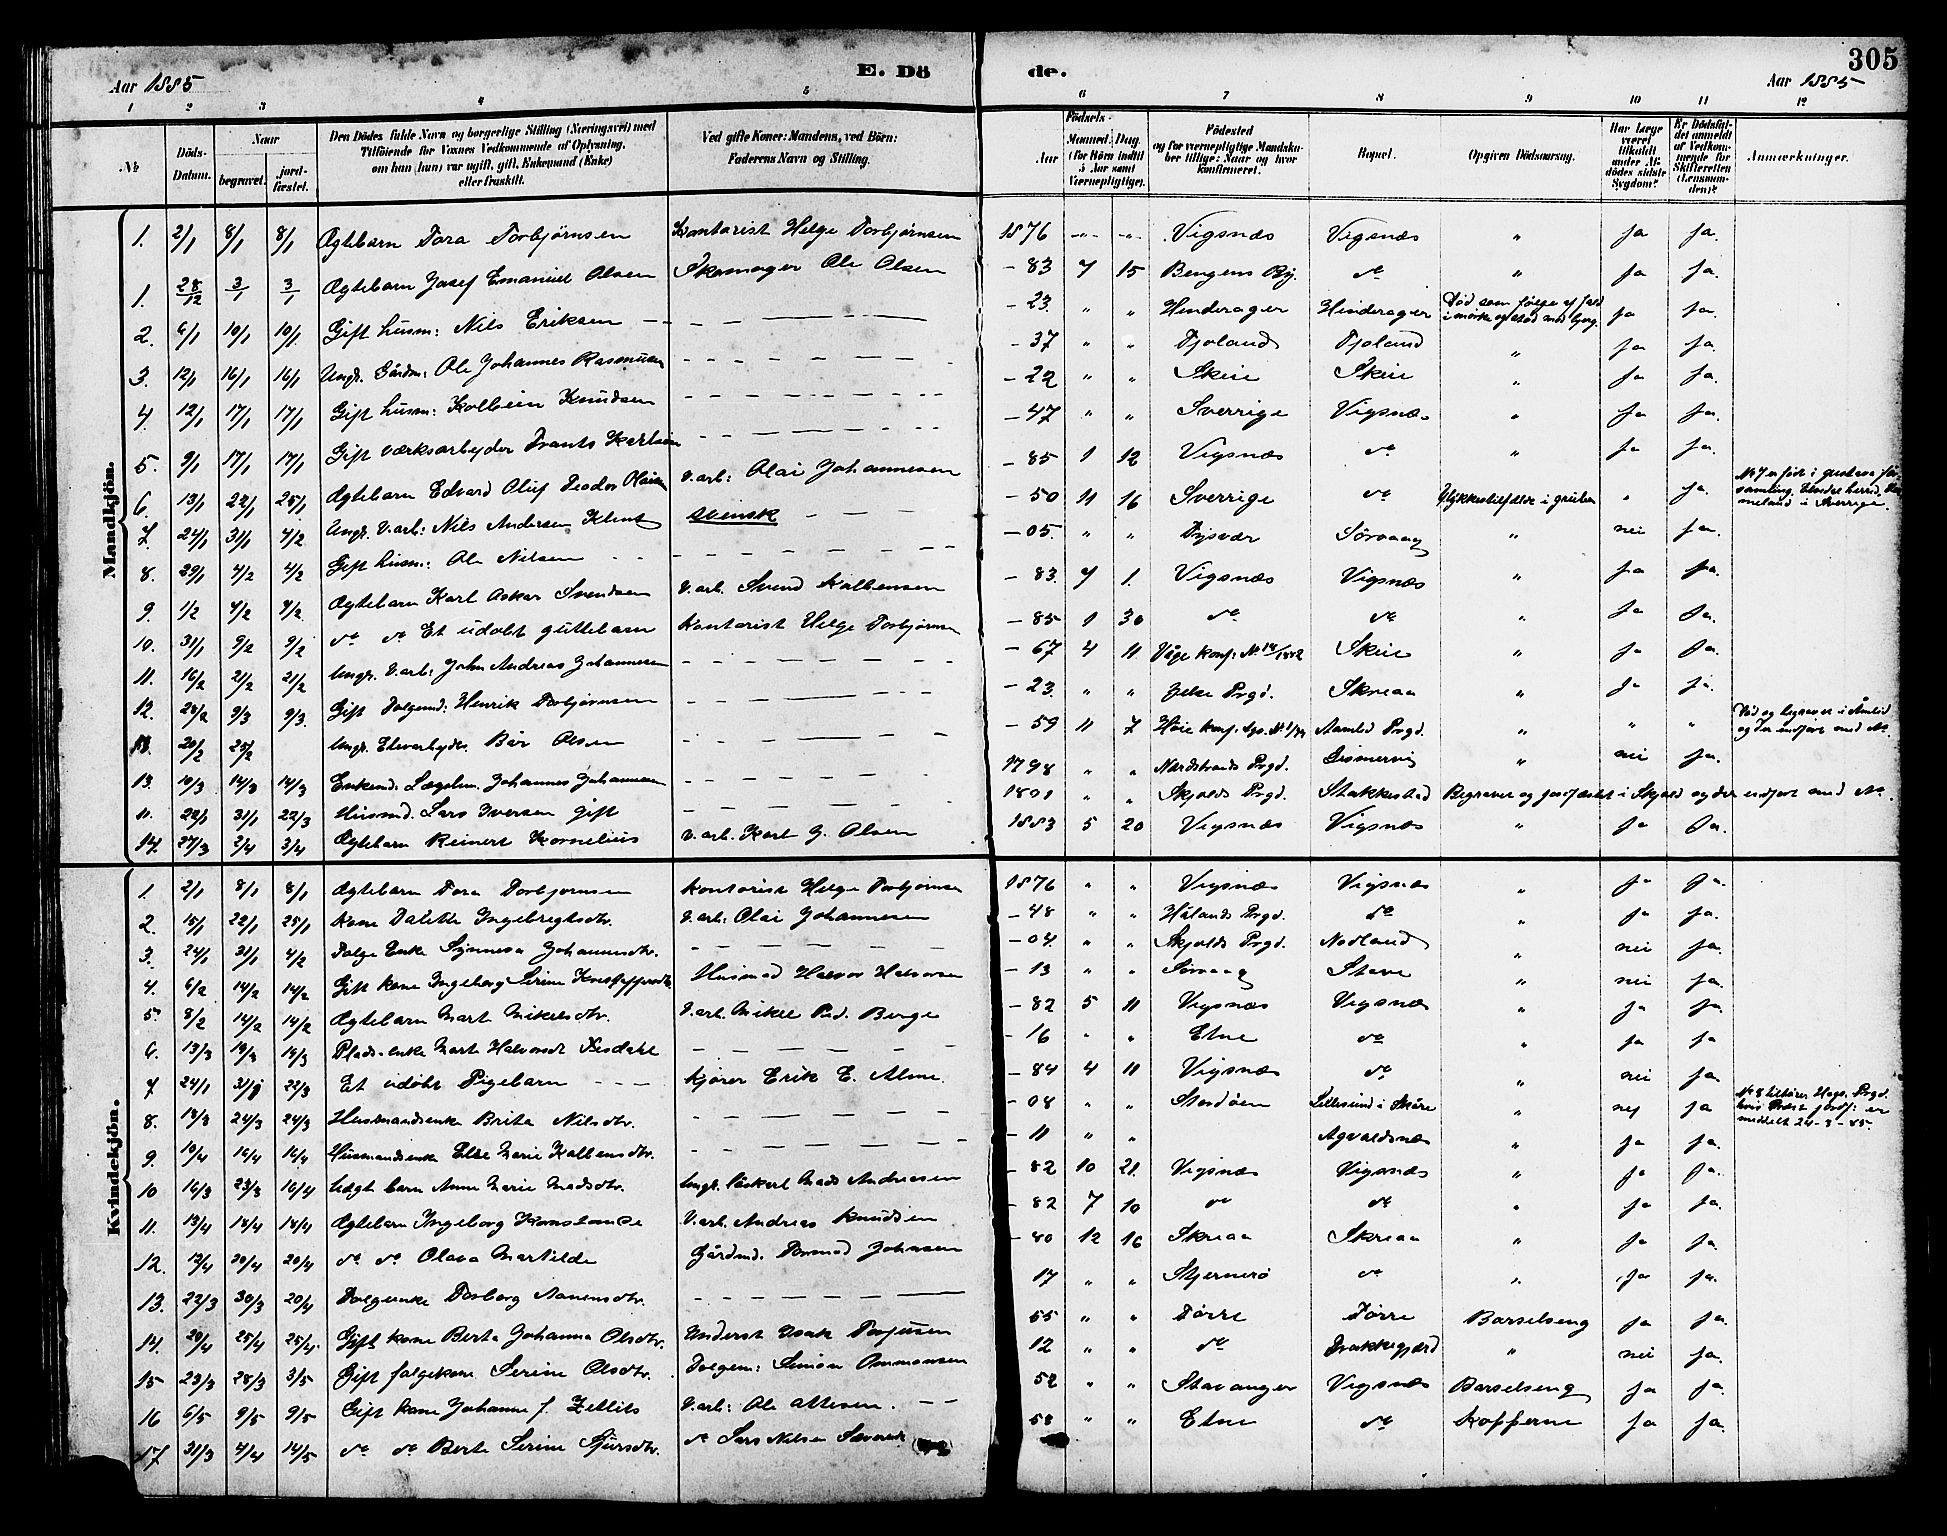 305
Aar 1885 E. Dö de. Aar 1885
1 2 3 4 5 6 7 8 9 10 11 12
No Döds-Datum. Naar begravet. jordfæstet. Den Dödes fulde Navn og borgerlige Stilling (Næringsvei) med Tilföiende for Voxnes Vedkommende af Oplysning, om han (hun) var ugift, gift, Enkemand (Enke) eller fraskilt. Ved gifte Koner: Mandens, ved Börn: Faderens Navn og Stilling. Födsels- Aar Maaned. Dag. (for Börn indtil 5 Aar samt Værnepligtige). Födested og for værnepligtige Mandskaber tillige: Naar og hvor konfirmeret. Bopæl. Opgiven Dödsaarsag. Har Læge været tilkaldt under Afdödes sidste Sygdom? Er Dödsfaldet anmeldt af Vedkommende for Skifteretten (Lensmanden)? Anmærkninger.
Mandkjön.
1. 2/1 8/1 8/1 Ægtebarn Tora Torbjørnsen Kontorist Helge Torbjørnsen 1876 -"- -"- Vigsnæs Vigsnæs " ja ja.
1. 28/12 3/1 3/1 Ægtebarn Josef Emanuel Olsen Skomager Ole Olsen -83 7 15 Bergens By. do " ja ja.
2. 6/1 10/1 10/1 Gift husm: Nils Eriksen -23. " " Hinderager Hinderager Død som følge af fald i mørke og stød mod bjerg. ja ja.
3. 12/1 16/1 16/1 Ungk. Gårdm: Ole Johannes Rasmusen -37 " " Tjoland Tjoland " ja ja.
4. 12/1 17/1 17/1 Gift husm: Kolbein Knudsen -22 " " Skeie Skeie " ja ja.
5. 9/1 17/1 17/1 Gift værksarbeyder Frants Karlsen -47 " " Sverrige Vigsnæs " ja ja.
6. 13/1 22/1 25/1 Ægtebarn Edvard Oluf Teodor Olaisen V.arb: Olai Johannesen -85 1 12 Vigsnæs do " ja ja.
7. 24/1 31/1 4/2 Ungk. V.arb: Nils Andersen Klint svensk -50 11 16 Sverrige do Ulykkestilfælde i gruben " ja. No 7 er født i
8. 29/1 4/2 4/2 Gift husm: Ole Nilsen -05. " " Tysvær Sørvaag " nei ja.
9. 1/2 4/2 4/2 Ægtebarn Karl Oskar Svendsen V.arb. Svend Kolbensen -83. 7 1. Vigsnæs Vigsnæs " ja ja.
10. 31/1 9/2 9/2 do do Et udøbt guttebarn Kontorist Helge Torbjørnsen -85 1 30 do do " ja ja.
11. 16/2 21/2 21/2 Ungk. V.arb: John Andreas Johannesen -67 4 11. Våge konf. Skeie " ja ja.
12. 28/2 9/3 9/3. Gift Folgemd: Henrik Torbjørnsen -23. " " Jelse Prgd. Skreaa " ja ja.
20/2 25/2 Ungk. Elevarbyder Bår Olsen -59 11 7 Høie konf. Aamlid Prgd. " " " Død og begravet i Åmlid og der indført med No
13. 10/3 14/3 14/3 Enkemd. Lægdlem. Johannes Johannesen 1798 " " Nærstrands Prgd. Gismervig " nei ja.
11. 22/1 31/1 22/3 Husmd. Lars Iversen gift 1801 " " Skjolds Prgd. Stakkestad Begravet og jordfæstet i Skjold og der indført med No.
14. 27/3 2/4 3/4 Ægtebarn Reinert Kornelius V.arb. Karl J. Olsen 1883 5 20 Vigsnæs Vigsnæs " ja ja.
Kvindekjön.
1. 2/1 8/1 8/1 Ægtebarn Tora Torbjørnsen Kontorist Helge Torbjørnsen 1876 " " Vigsnæs Vigsnæs " ja ja.
2. 15/1 22/1 25/1 Kone Dalette Ingebregtsdtr. V.arb: Olai Johannesen -48 " " Hålands Prgd. do " ja ja.
3. 24/1 31/1 4/2 Folge Enke Synneva Johannesdtr. -04. " " Skjolds Prgd. Nodland " nei ja.
4. 6/2 14/2 14/2 Gift kone Ingeborg Serine Kristoffersdtr. Husmd Halvor Halvorsen -13 " " Sørvaag Stave " nei ja.
5. 8/2 14/2 14/2 Ægtebarn Mart Mikelsdtr. V.arb. Mikel Ped. Berge -82 5 11 Vigsnæs Vigsnæs " ja ja.
6. 13/3 19/3 19/3 Plads-enke Mart Halvorsdt -16 " " Etne do " ja ja
7 24/1 31/1 22/3 Et udøbt Pigebarn Kjører Erik E. Alme. -84 4 11 Vigsnæs do " nei ja.
8. 18/3 24/3 24/3 Husmandsenke Brita Nilsdtr. -08 " " Stordøen Lillesund i Skåre " nej ja No 8 tilhører Hags. Prgd. hvis Præst jordf: er meddelt 24-3-85.
9. 10/4 16/4 16/4 Husmandsenke Else Marie Kolbensdtr. -11 " " Agvaldsnæs " ja ja.
10 16/3 23/3 16/4 Uægt barn Anne Marie Madsdtr. Ungk. Mads Andreasen -82 10 21. Vigsnæs Vigsnæs " ja ja.
11. 13/4 18/4 18/4 Ægtebarn Ingeborg Konstanse V.arb. Andreas Knudsen -82 7 10 do do " ja ja.
12. 12/4 20/4 20/4 do do Olava Martilde Gårdmd. Tormod Johnsen -80 12 16 Skreaa Skreaa " ja ja.
13. 22/3 30/3 20/4 Folgeenke Torborg Aanensdtr. 17 " " Stjernerø do " ja ja.
14. 20/4 25/4 25/4. Gift kone Berta Johanna Olsdtr. Underst Isak Torjusen 55 " " Førre Førre Barselseng ja ja.
15 23/3 28/3 3/5 Gift folgekone Serine Olsdtr. Folgem: Simon Ammonsen 12 " " do Frakkagjerd " nei ja.
16 6/5 9/5 9/5 Gift kone Johanne f. Zetlits V.arb: Ole 52 " " Stavanger Vigsnæs Barselseng ja ja.
17 31/3 4/4 14/5 do do Berte Serine Sjursdtr. do Lars Nilsen 58 " " Etne do Kopperne ja ja.